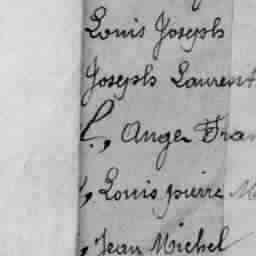 Louis Joseph
Joseph Laurent
L., Ange Fran
, Louis pierre M
, Jean Michel